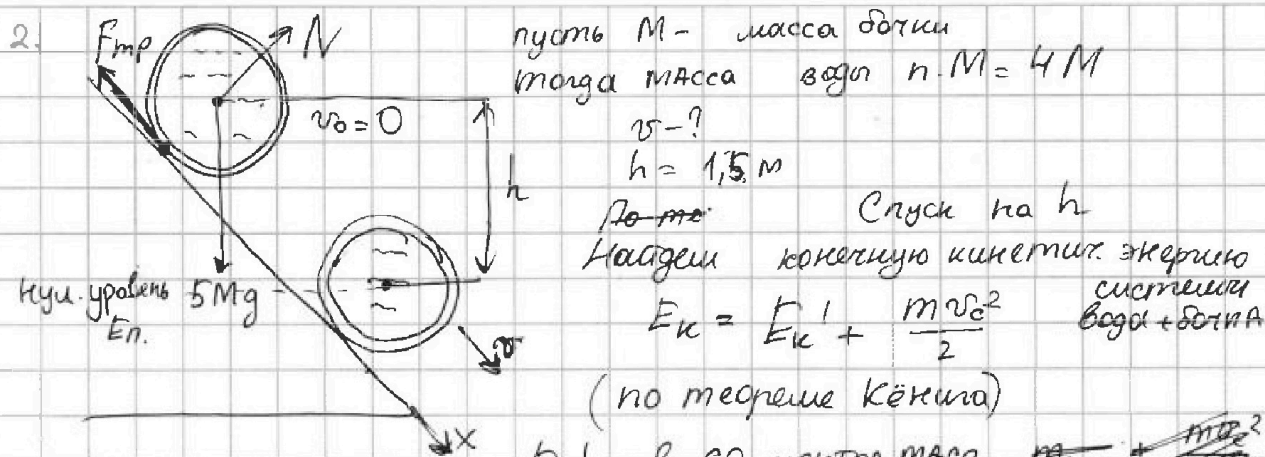 2.
Fтр
N
v₀ = 0
h
5Mg
нул. уровень
Eп.
v
x
пусть M - масса бочки
тогда масса воды n·M = 4M
v - ?
h = 1,5 м
Спуск на h
Найдем конечную кинетич. энергию
системы
вода + бочка
Eк = Eк' + mvc²/2
(по теореме Кёнига)